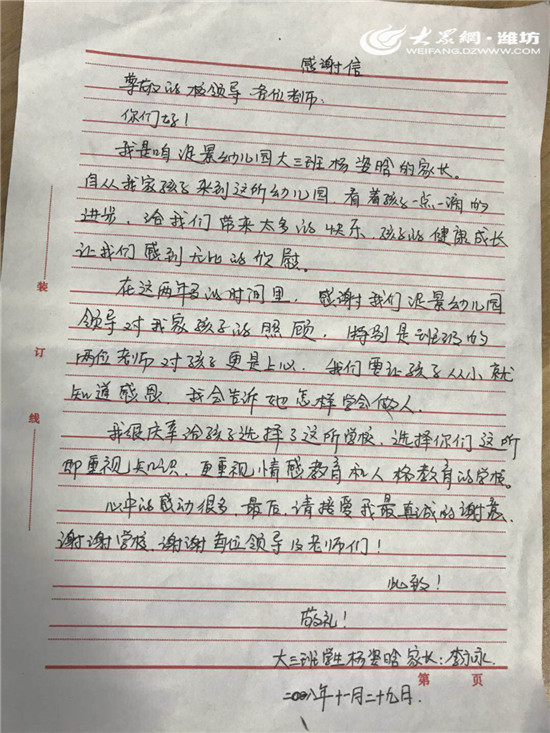 大众网·潍坊
WEIFANG.DZWWW.COM
感谢信
尊敬的校领导各位老师:
你们好!
我是咱泥景幼儿园大三班杨姿晗的家长。
自从我家孩子来到这所幼儿园,看着孩子一点一滴的
进步,给我们带来太多的快乐,孩子的健康成长
让我们感到无比的欣慰。
在这两年多的时间里,感谢我们泥景幼儿园
领导对我家孩子的照顾,特别是班级的
两位老师对孩子更是上心,我们要让孩子从小就
知道感恩,我会告诉她怎样学会做人。
我很庆幸给孩子选择了这所学校,选择你们这所
即重视知识,更重视情感教育和人格教育的学校。
心中的感动很多,最后,请接受我最真诚的谢意,
谢谢学校,谢谢各位领导及老师们!
此致!
敬礼!
大三班学生杨姿晗家长:李永
二〇一八年十一月二十九日.
装
订
线
第 页